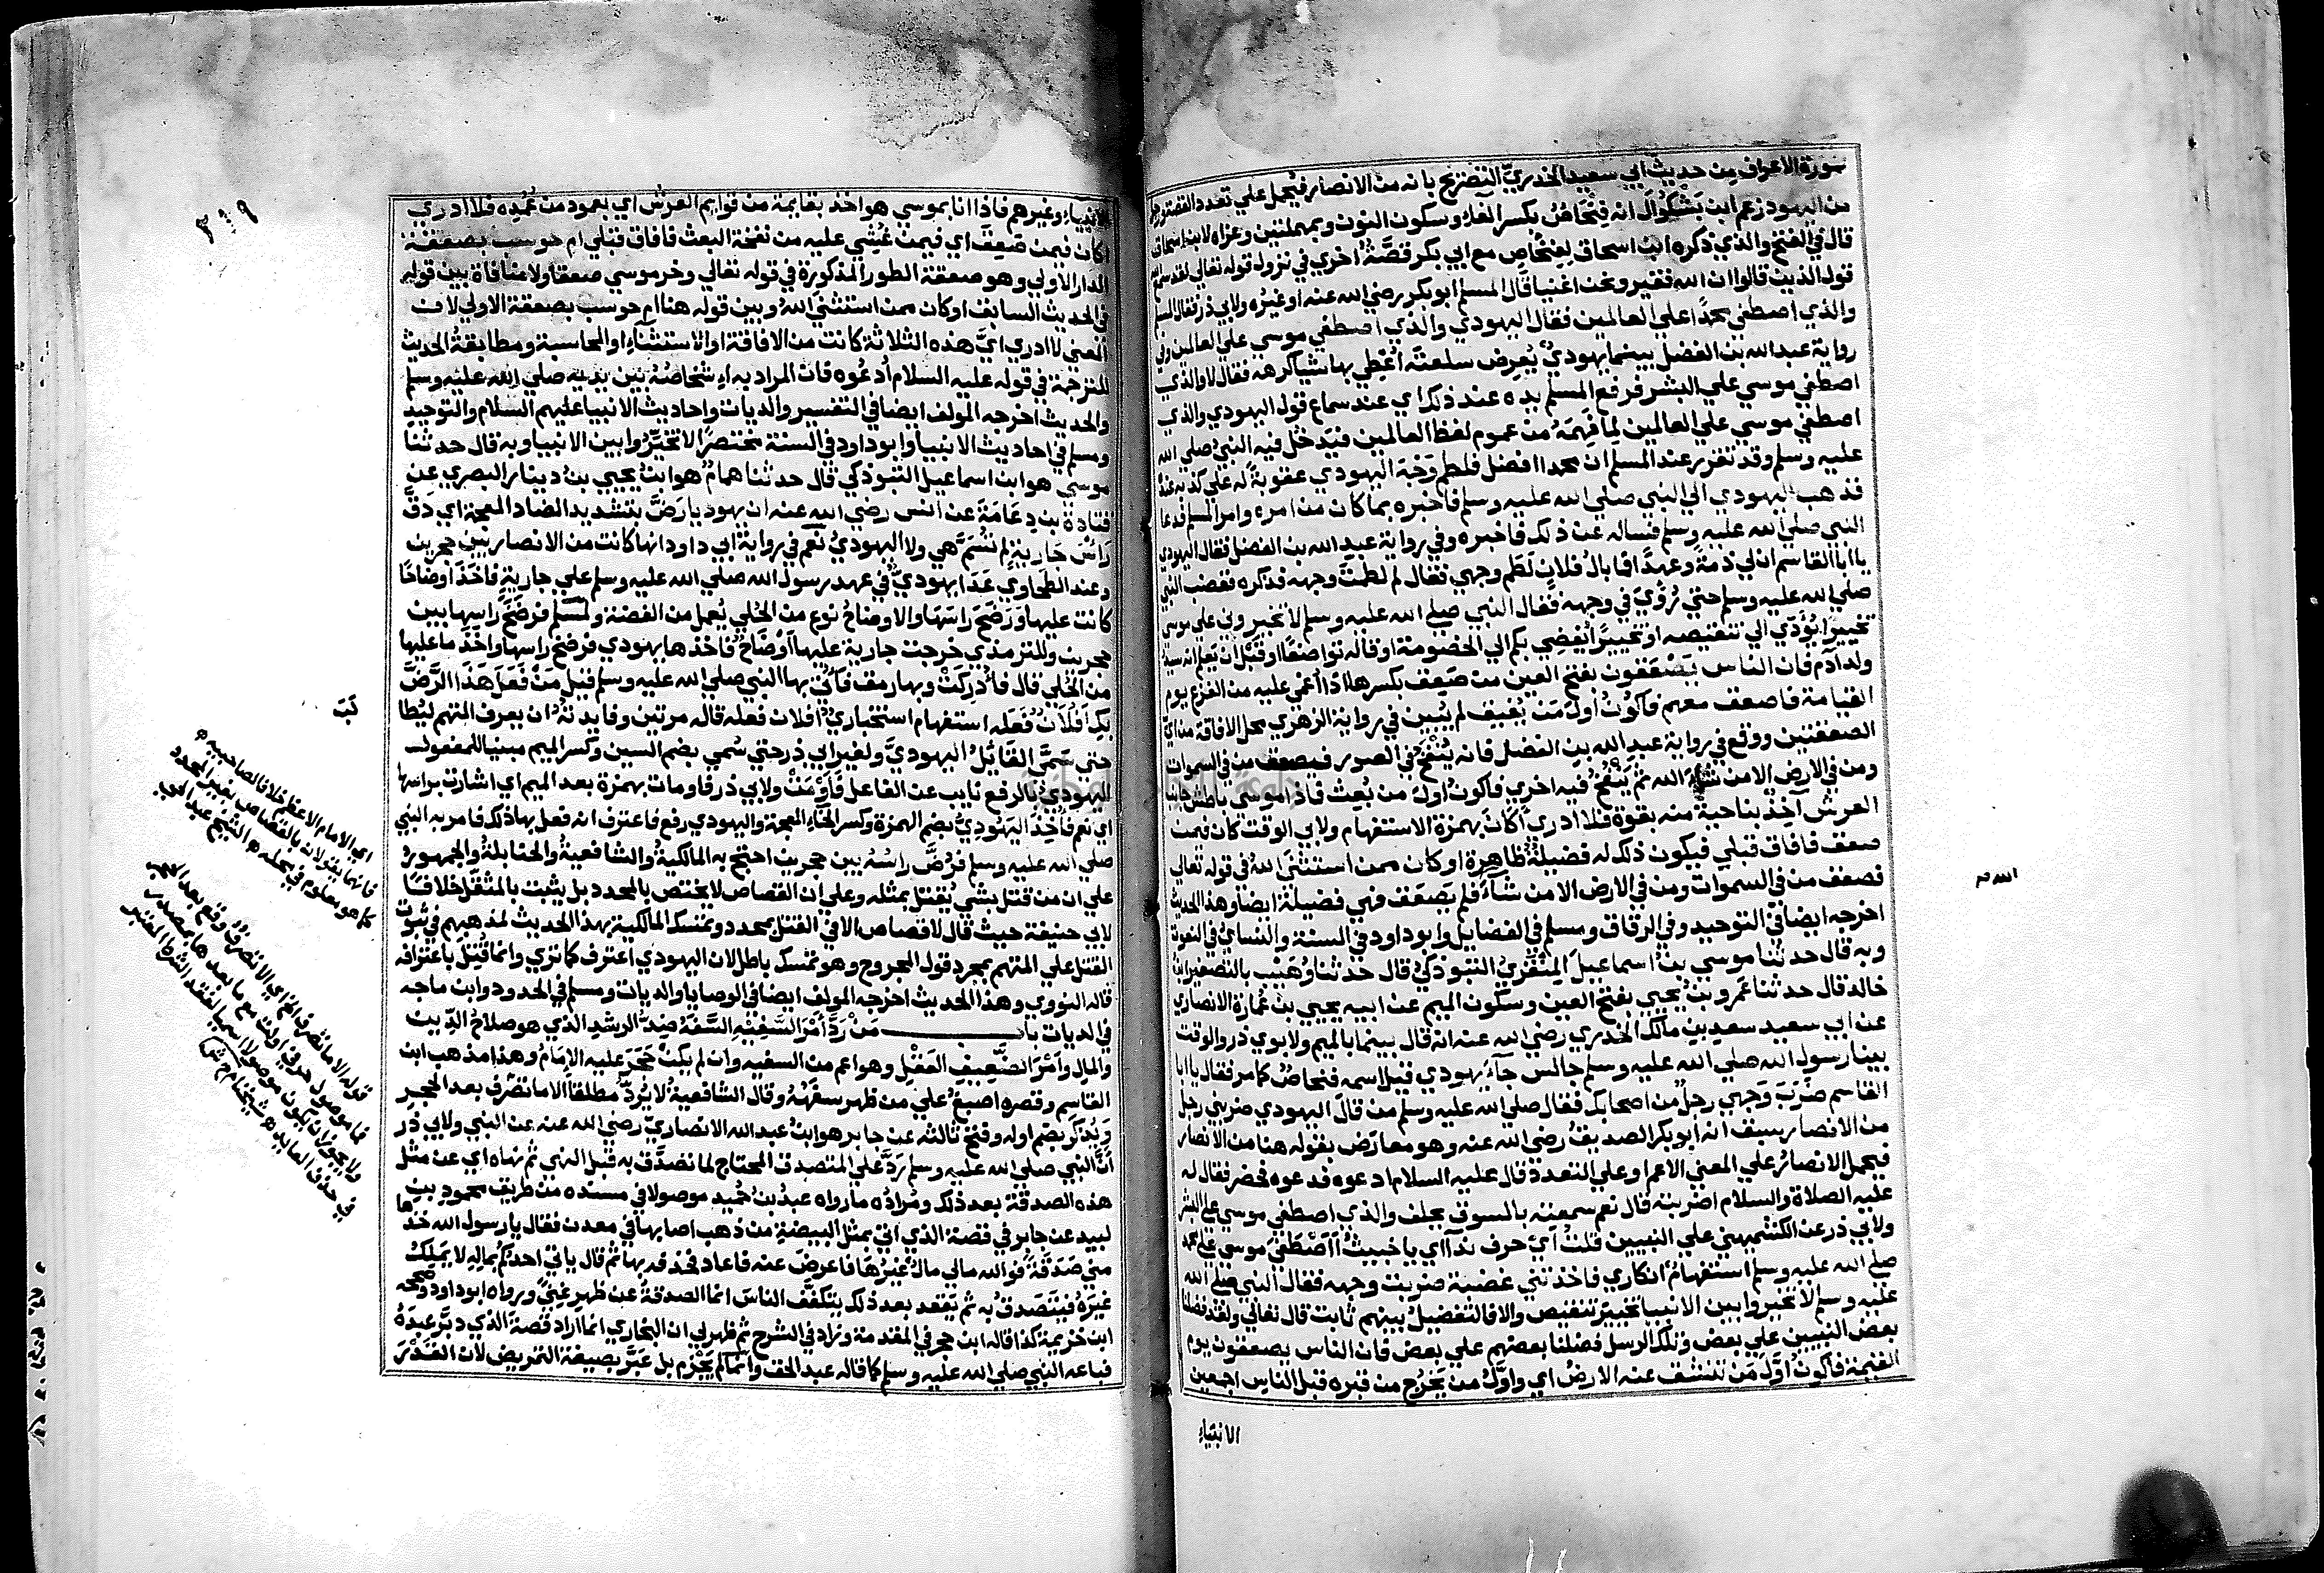 سورة الاعراف من حديث ابي سعيد الخدري التصريح بانه من الانصار فيحمل علي تعدد القصة
من اليهود زعم ابن بشكوال انه فنحاص بكسر الفاء وسكون النون وبمهملتين وعزاه لابن اسحاق
قال في الفتح والذي ذكره ابن اسحاق لفنحاص مع ابي بكر قصة اخري في نزول قوله تعالي لقد سمع الله
قول الذين قالوا ان الله فقير ونحن اغنيا قال المسلم ابو بكر رضي الله عنه او غيره ولابي ذر فقال المسلم
والذي اصطفي محمدا علي العالمين فقال اليهودي والذي اصطفي موسي علي العالمين وفي
رواية عبد الله بن الفضل بينما يهودي يعرض سلعته اعطي بها شيا كرهه فقال لا والذي
اصطفي موسي علي البشر فرفع المسلم يده عند ذلك اي عند سماع قول اليهودي والذي
اصطفي موسي علي العالمين لما فهمه من عموم لفظ العالمين فيدخل فيه النبي صلي الله
عليه وسلم وقد تقرر عند المسلم ان محمدا افضل فلطم وجه اليهودي عقوبة له علي كذبه عنده
فذهب اليهودي الي النبي صلي الله عليه وسلم فاخبره بما كان من امره وامر المسلم فدعا
النبي صلي الله عليه وسلم فساله عن ذلك فاخبره وفي رواية عبد الله بن الفضل فقال اليهودي
يا ابا القاسم ان لي ذمة وعهدا فما بال فلان لطم وجهي فقال لم لطمت وجهه فذكره فغضب النبي
صلي الله عليه وسلم حتي رؤي في وجهه فقال النبي صلي الله عليه وسلم لا تخيروني علي موسي
تخييرا يؤدي الي تنقيصه او تخييرا يفضي بكم الي الخصومة او قاله تواضعا او قبل ان يعلم انه سيد
ولد ادم فان الناس يصعقون بفتح العين من صعق بكسرها اذا اغمي عليه من الفزع يوم
القيامة فاصعق معهم فاكون اول من يفيق لم يبين في رواية الزهري محل الافاقة من اي
الصعقتين ووقع في رواية عبد الله بن الفضل فانه ينفخ في الصور فيصعق من في السموات
ومن في الارض الا من شاء الله ثم ينفخ فيه اخري فاكون اول من بعث فاذا موسي باطش جانب
العرش آخذ بناحية منه بقوة فلا ادري اكان بهمزة الاستفهام ولابي الوقت كان فيمن
صعق فافاق قبلي فيكون ذلك له فضيلة ظاهرة او كان ممن استثني الله في قوله تعالي
فصعق من في السموات ومن في الارض الا من شاء فلم يصعق فهي فضيلة ايضا وهذا الحديث
اخرجه ايضا في التوحيد وفي الرقاق ومسلم في الفضايل وابو داود في السنة والنساي في النعوت
وبه قال حدثنا موسي بن اسماعيل المنقري التبوذكي قال حدثنا وهيب بالتصغير ابن
خالد قال حدثنا عمرو بن يحيي بفتح العين وسكون الميم عن ابيه يحيي بن عمارة الانصاري
عن ابي سعيد سعد بن مالك الخدري رضي الله عنه انه قال بينما بالميم ولابوي ذر والوقت
بينا رسول الله صلي الله عليه وسلم جالس جاء يهودي قيل اسمه فنحاص كما مر فقال يا ابا
القاسم ضرب وجهي رجل من اصحابك فقال صلي الله عليه وسلم من قال اليهودي ضربني رجل
من الانصار سبق انه ابو بكر الصديق رضي الله عنه وهو معارض بقوله هنا من الانصار
فيحمل الانصار علي المعني الاعم او علي التعدد قال عليه السلام ادعوه فدعوه فحضر فقال له
عليه الصلاة والسلام اضربته قال نعم سمعته بالسوق يحلف والذي اصطفي موسي علي البشر
ولابي ذر عن الكشميهني علي النبيين قلت اي حرف ندا اي يا خبيث أاصطفي موسي علي محمد
صلي الله عليه وسلم استفهام انكاري فاخذتني غضبة ضربت وجهه فقال النبي صلي الله
عليه وسلم لا تخيروا بين الانبيا تخيير تنقيص والا فالتفضيل بينهم ثابت قال تعالي ولقد فضلنا
بعض النبيين علي بعض وتلك الرسل فضلنا بعضهم علي بعض فان الناس يصعقون يوم
القيمة فاكون اول من تنشق عنه الارض اي واول من يخرج من قبره قبل الناس اجمعين
الانبياء
الله م
الانبياء وغيرهم فاذا انا بموسي هو اخذ بقايمة من قوايم العرش اي بعمود من عمده فلا ادري
اكان فيمن صعق اي فيمن غشي عليه من نفخة البعث فافاق قبلي ام حوسب بصعقة
الدار الاولي وهو صعقة الطور المذكورة في قوله تعالي وخر موسي صعقا ولا منافاة بين قوله
في الحديث السابق او كان ممن استثني الله وبين قوله هنا ام حوسب بصعقة الاولي لان
المعني لا ادري اي هذه الثلاثة كانت من الافاقة او الاستثناء او المحاسبة ومطابقة الحديث
للترجمة في قوله عليه السلام ادعوه فان المراد به اشخاصه بين يديه صلي الله عليه وسلم
والحديث اخرجه المولف ايضا في التفسير والديات واحاديث الانبيا عليهم السلام والتوحيد
ومسلم في احاديث الانبيا وابو داود في السنة مختصرا لا تخيروا بين الانبيا وبه قال حدثنا
موسي هو ابن اسماعيل التبوذكي قال حدثنا همام هو ابن يحيي بن دينار البصري عن
قتادة بن دعامة عن انس رضي الله عنه ان يهوديا رض بتشديد الضاد المعجمة اي دق
راس جارية لم تسم هي ولا اليهودي نعم في رواية ابي داود انها كانت من الانصار بين حجرين
وعند الطحاوي عدا يهودي في عهد رسول الله صلي الله عليه وسلم علي جارية فاخذ اوضاحا
كانت عليها ورضخ راسها والاوضاح نوع من الحلي يعمل من الفضة ولمسلم فرضخ راسها بين
حجرين وللترمذي خرجت جارية عليها اوضاح فاخذها يهودي فرضخ راسها واخذ ما عليها
من الحلي قال فادركت وبها رمق فاتي بها النبي صلي الله عليه وسلم قيل من فعل هذا الرض
بك افلان فعله استفهام استخباري افلان فعله قاله مرتين وفايدته ان يعرف المتهم ليطالب
حتي سمي القايل اليهودي ولغير ابي ذر حتي سمي بضم السين وكسر الميم مبنيا للمفعول
اليهودي بالرفع نايب عن الفاعل فاومت ولابي ذر فاومات بهمزة بعد الميم اي اشارت براسها
اي نعم فاخذ اليهودي بضم الهمزة وكسر الخاء المعجمة واليهودي رفع فاعترف انه فعل بها ذلك فامر به النبي
صلي الله عليه وسلم فرض راسه بين حجرين احتج به المالكية والشافعية والحنابلة والجمهور
علي ان من قتل بشي يقتل بمثله وعلي ان القصاص لا يختص بالمحدد بل يثبت بالمثقل خلافا
لابي حنيفة حيث قال لا قصاص الا في القتل بمحدد وتمسك المالكية بهذا الحديث لمذهبهم في ثبوت
القتل علي المتهم بمجرد قول المجروح وهو تمسك باطل لان اليهودي اعترف كما تري وانما قتل باعترافه
قاله النووي وهذا الحديث اخرجه المولف ايضا في الوصايا والديات ومسلم في الحدود وابن ماجه
في الديات باب من رد امر السفيه السفه ضد الرشد الذي هو صلاح الدين
والمال وامر الضعيف العقل وهو اعم من السفيه وان لم يكن حجر عليه الامام وهذا مذهب ابن
القاسم وقصره اصبغ علي من ظهر سفهه وقال الشافعية لا يرد مطلقا الا ما تصرف بعد الحجر
ويذكر بضم اوله وفتح ثالثه عن جابر هو ابن عبد الله الانصاري رضي الله عنه عن النبي ولابي ذر
ان النبي صلي الله عليه وسلم رد علي المتصدق المحتاج لما تصدق به قبل النهي ثم نهاه اي عن مثل
هذه الصدقة بعد ذلك ومراده ما رواه عبد بن حميد موصولا في مسنده من طريق محمود بن
لبيد عن جابر في قصة الذي اتي بمثل البيضة من ذهب اصابها في معدن فقال يا رسول الله خذها
مني صدقة فوالله مالي مال غيرها فاعرض عنه فاعاد فحذفه بها ثم قال ياتي احدكم بماله لا يملك
غيره فيتصدق به ثم يقعد بعد ذلك يتكفف الناس انما الصدقة عن ظهر غني ورواه ابو داود وصححه
ابن خزيمة كذا قاله ابن حجر في المقدمة وزاد في الشرح ثم ظهر لي ان البخاري انما اراد قصة الذي دبر عبده
فباعه النبي صلي الله عليه وسلم كما قاله عبد الحق وانما لم يجزم بل عبر بصيغة التمريض لان القدر
اي الامام الاعظم خلافا لصاحبيه
فانهما يقولان بالقصاص بغير المحدد
كما هو معلوم في محله
قوله الا ما تصرف